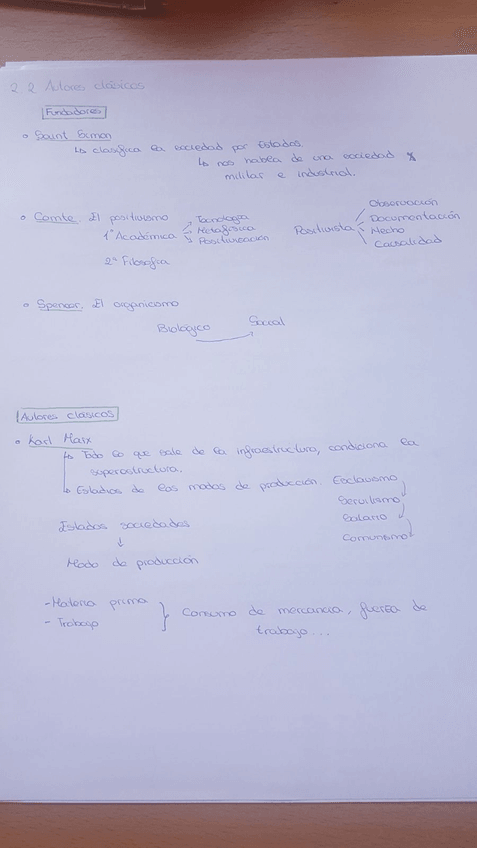 2.2 Autores clásicos
Fundadores
Saint Simon
↳ clasifica la sociedad por Estados.
↳ nos habla de una sociedad
militar e industrial.
Comte. El positivismo
1ª Académica
Tecnología
Metafísica
Positivización
2ª Filosofía
Positivista
Observación
Documentación
Hecho
Causalidad
Spencer. El organicismo
Biológico Social
Autores clásicos
Karl Marx
↳ Todo lo que sale de la infraestructura, condiciona la
superestructura.
↳ Estadios de los modos de producción. Esclavismo
Servilismo
Salario
Comunismo
Estados sociedades
↓
Modo de producción
- Materia prima
- Trabajo
} Consumo de mercancía, fuerza de
trabajo...